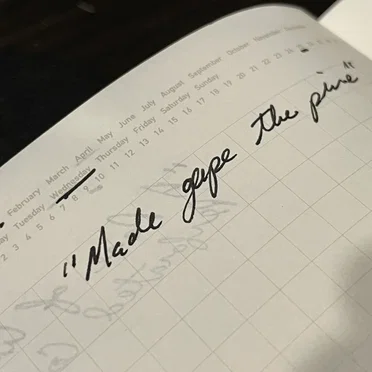 February March April May June July August September October November December
Tuesday Wednesday Thursday Friday Saturday Sunday
2 3 4 5 6 7 8 9 10 11 12 13 14 15 16 17 18 19 20 21 22 23 24
"Made gape the pine"